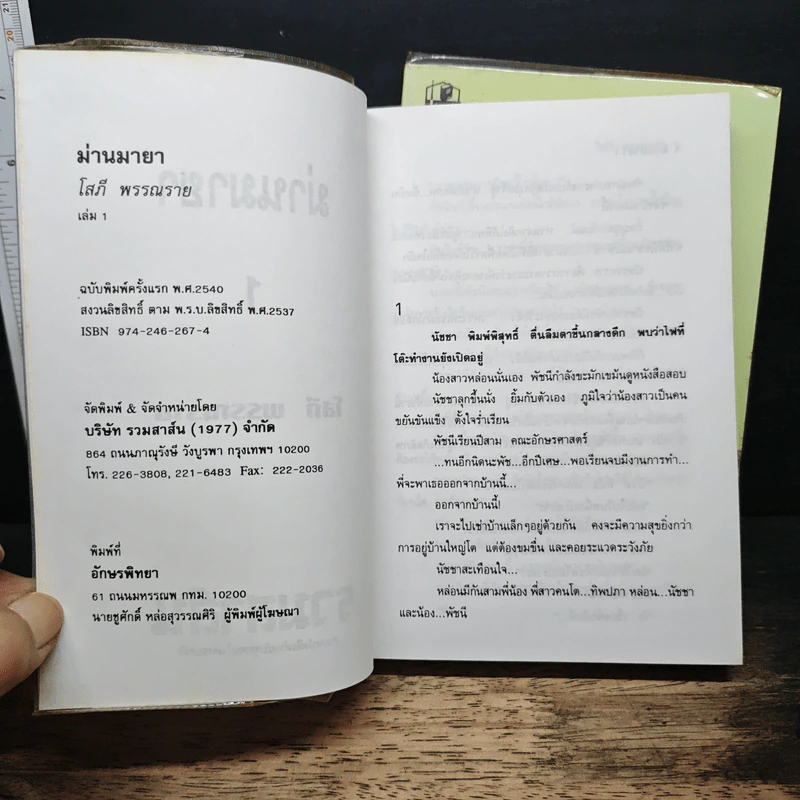 ม่านมายา
โสภี พรรณราย
เล่ม 1
ฉบับพิมพ์ครั้งแรก พ.ศ.2540
สงวนลิขสิทธิ์ ตาม พ.ร.บ.ลิขสิทธิ์ พ.ศ.2537
ISBN 974-246-267-4
จัดพิมพ์ & จัดจำหน่ายโดย
บริษัท รวมสาส์น (1977) จำกัด
864 ถนนภาณุรังษี วังบูรพา กรุงเทพฯ 10200
โทร. 226-3808, 221-6483 Fax: 222-2036
พิมพ์ที่
อักษรพิทยา
61 ถนนมหรรณพ กทม. 10200
นายชูศักดิ์ หล่อสุวรรณศิริ ผู้พิมพ์ผู้โฆษณา
1
นัชชา พิมพ์พิสุทธิ์ ตื่นลืมตาขึ้นกลางดึก พบว่าไฟที่
โต๊ะทำงานยังเปิดอยู่
น้องสาวหล่อนนั่นเอง พัชนีกำลังขะมักเขม้นดูหนังสือสอบ
นัชชาลุกขึ้นนั่ง ยิ้มกับตัวเอง ภูมิใจว่าน้องสาวเป็นคน
ขยันขันแข็ง ตั้งใจร่ำเรียน
พัชนีเรียนปีสาม คณะอักษรศาสตร์
...ทนอีกนิดนะพัช...อีกปีเศษ...พอเรียนจบมีงานการทำ...
พี่จะพาเธอออกจากบ้านนี้...
ออกจากบ้านนี้!
เราจะไปเช่าบ้านเล็กๆอยู่ด้วยกัน คงจะมีความสุขยิ่งกว่า
การอยู่บ้านใหญ่โต แต่ต้องขมขื่น และคอยระแวดระวังภัย
นัชชาสะเทือนใจ...
หล่อนมีกันสามพี่น้อง พี่สาวคนโต...ทิพปภา หล่อน...นัชชา
และน้อง...พัชนี